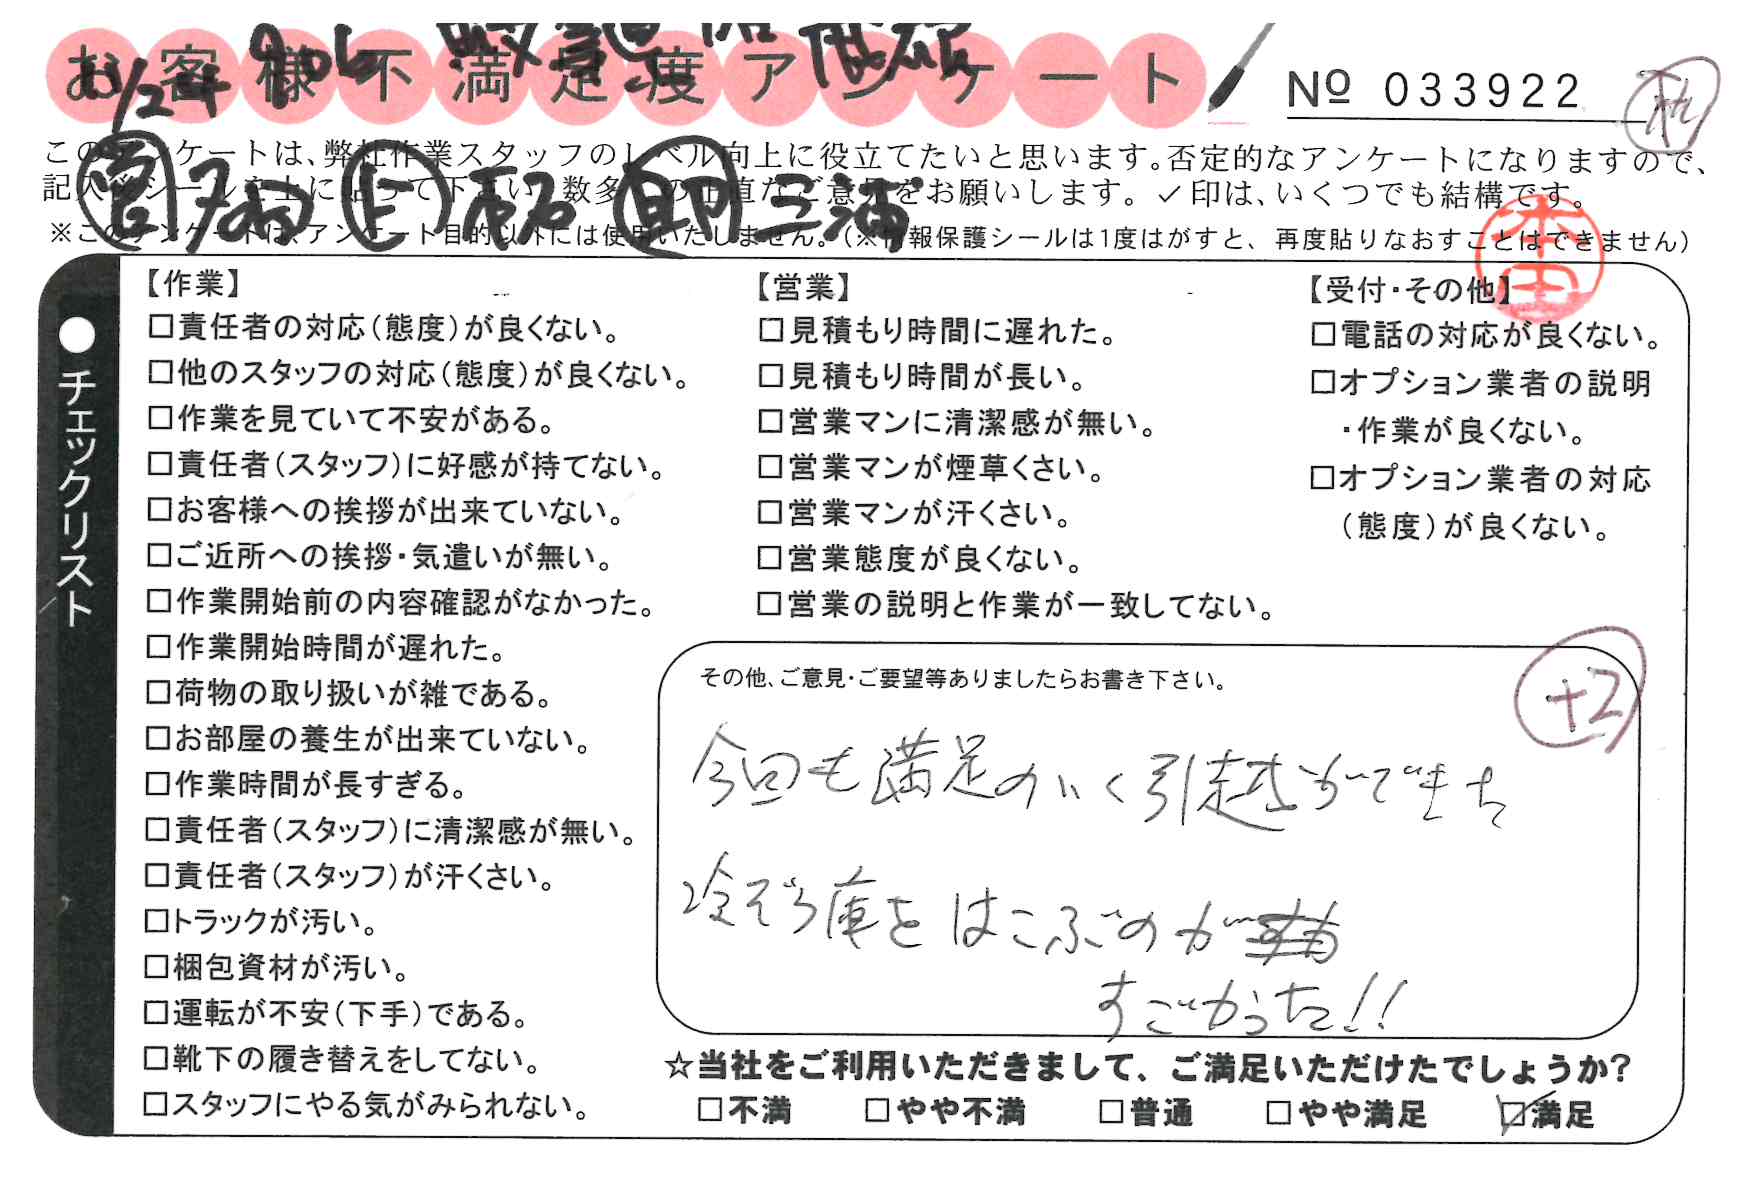 お客様不満足度アンケート
Nº 033922
このアンケートは、弊社作業スタッフのレベル向上に役立てたいと思います。否定的なアンケートになりますので、
記入後シールを上に貼って下さい。数多くの正直なご意見をお願いします。✓印は、いくつでも結構です。
※このアンケートは、アンケート目的以外には使用いたしません。(※情報保護シールは1度はがすと、再度貼りなおすことはできません)
三浦
本田
●チェックリスト
【作業】
□責任者の対応(態度)が良くない。
□他のスタッフの対応(態度)が良くない。
□作業を見ていて不安がある。
□責任者(スタッフ)に好感が持てない。
□お客様への挨拶が出来ていない。
□ご近所への挨拶・気遣いが無い。
□作業開始前の内容確認がなかった。
□作業開始時間が遅れた。
□荷物の取り扱いが雑である。
□お部屋の養生が出来ていない。
□作業時間が長すぎる。
□責任者(スタッフ)に清潔感が無い。
□責任者(スタッフ)が汗くさい。
□トラックが汚い。
□梱包資材が汚い。
□運転が不安(下手)である。
□靴下の履き替えをしてない。
□スタッフにやる気がみられない。
【営業】
□見積もり時間に遅れた。
□見積もり時間が長い。
□営業マンに清潔感が無い。
□営業マンが煙草くさい。
□営業マンが汗くさい。
□営業態度が良くない。
□営業の説明と作業が一致してない。
【受付・その他】
□電話の対応が良くない。
□オプション業者の説明
・作業が良くない。
□オプション業者の対応
(態度)が良くない。
その他、ご意見・ご要望等ありましたらお書き下さい。
+2
今回も満足のいく引越ができた
冷ぞう庫をはこぶのが
すごかった!!
☆当社をご利用いただきまして、ご満足いただけたでしょうか?
□不満 □やや不満 □普通 □やや満足 ☑満足